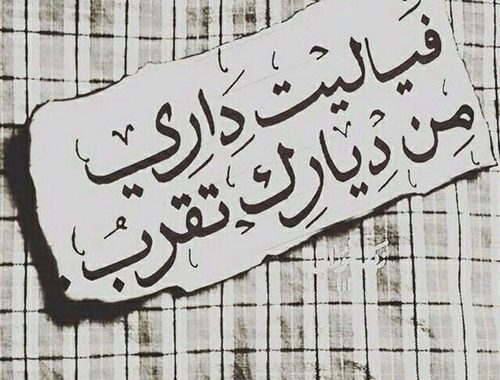 فَياليت دَاري
مِن دِيارك تقربُ